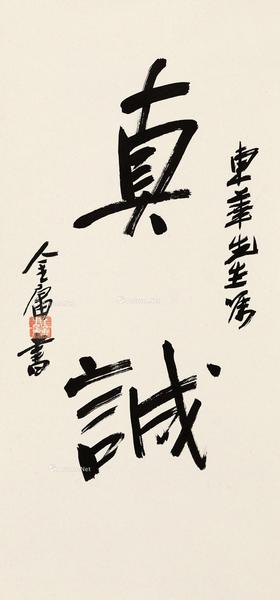 東華先生嘱
真誠
金庸書